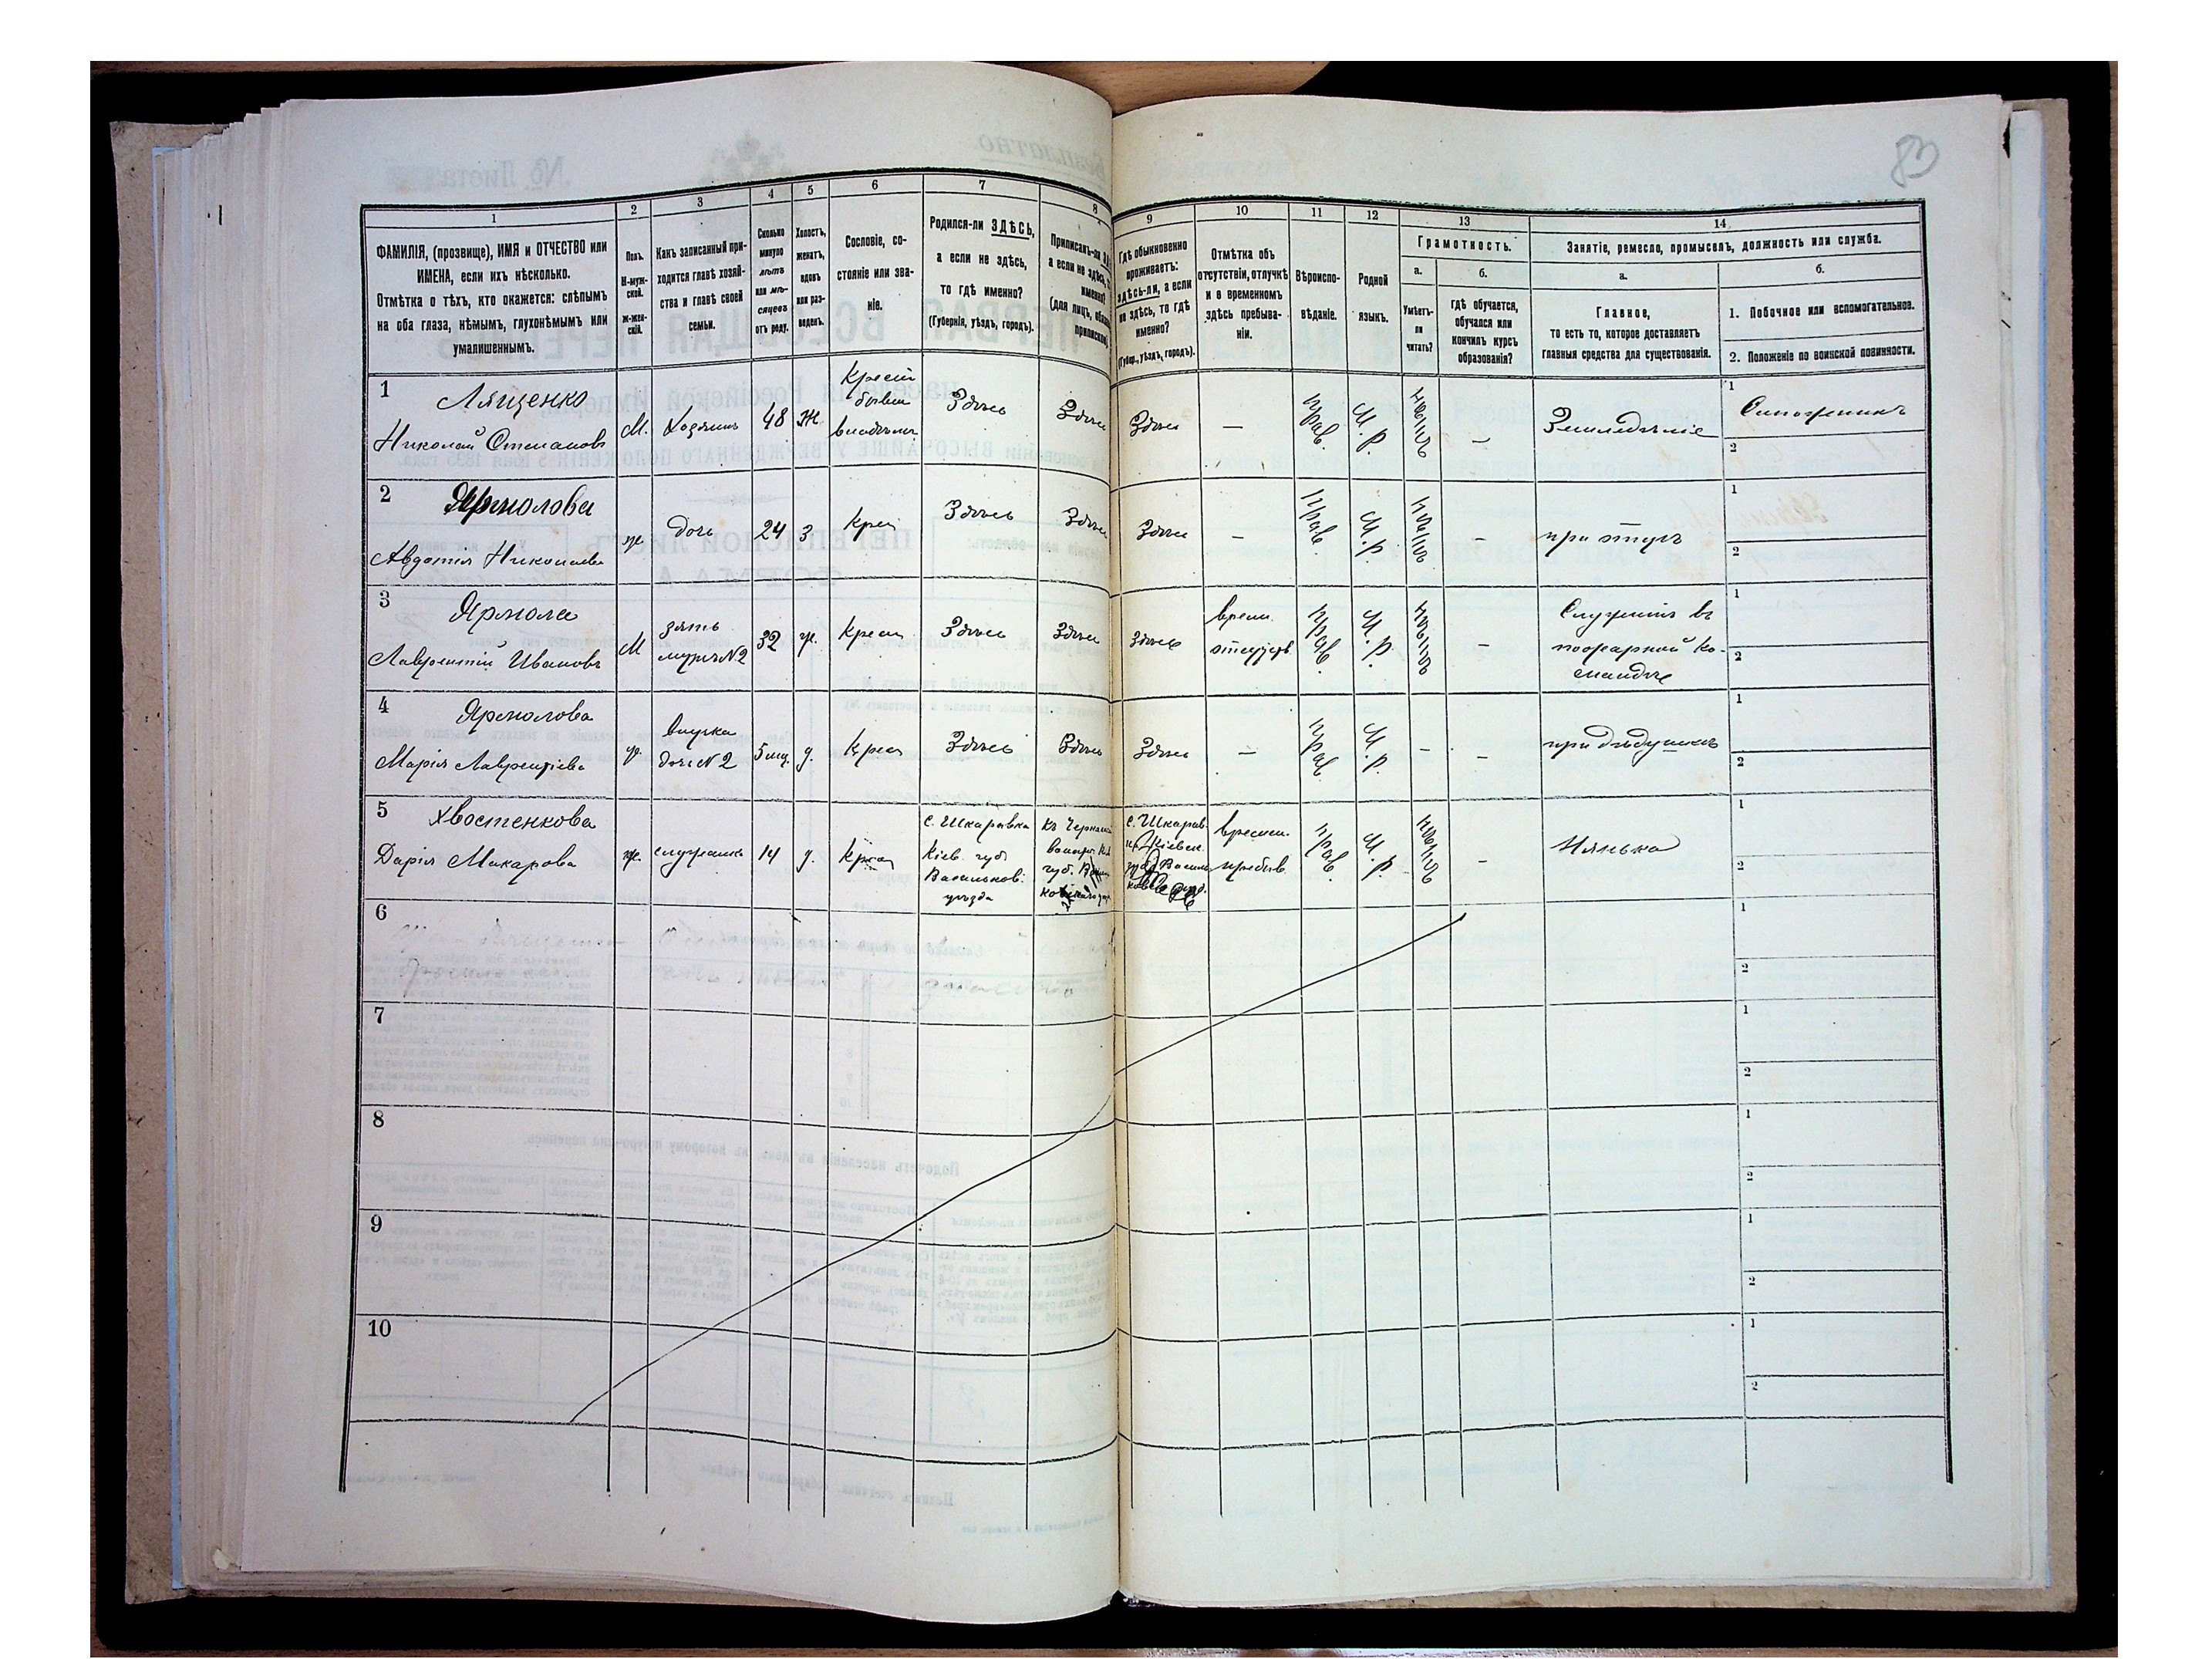 83
1
2
3
4
5
6
7
8
9
10
11
12
13
14
ФАМИЛІЯ, (прозвище), ИМЯ и ОТЧЕСТВО или
ИМЕНА, если ихъ нѣсколько.
Отмѣтка о тѣхъ, кто окажется: слѣпымъ
на оба глаза, нѣмымъ, глухонѣмымъ или
умалишеннымъ.
Полъ.
М-муж-
ской.
ж-жен-
скій.
Какъ записанный при-
ходится главѣ хозяй-
ства и главѣ своей
семьи.
Сколько
минуло
лѣтъ
или мѣ-
сяцевъ
отъ роду.
Холостъ,
женатъ,
вдовъ
или раз-
веденъ.
Сословіе, со-
стояніе или зва-
ніе.
Родился-ли ЗДѢСЬ,
а если не здѣсь,
то гдѣ именно?
(Губернія, уѣздъ, городъ).
Приписанъ-ли
а если не здѣсь,
именно?
(для лицъ,
Гдѣ обыкновенно
проживаетъ:
здѣсь-ли, а если
не здѣсь, то гдѣ
именно?
(Губер., уѣздъ, городъ).
Отмѣтка объ
отсутствіи, отлучкѣ
и о временномъ
здѣсь пребыва-
ніи.
Вѣроиспо-
вѣданіе.
Родной
языкъ.
Грамотность.
а.
Умѣетъ-
ли
читать?
б.
гдѣ обучается,
обучался или
кончилъ курсъ
образованія?
Занятіе, ремесло, промыселъ, должность или служба.
а.
Главное,
то есть то, которое доставляетъ
главныя средства для существованія.
б.
1. Побочное или вспомогательное.
2. Положеніе по воинской повинности.
1
Лященко
Николай Степановъ
М.
Хозяинъ
48
Ж
Крест
бывш
владѣльч
Здѣсь
Здѣсь
Здѣсь
—
Прав.
М.р.
—
Земледѣліе
1
Сапожникъ
2
2
Ярмолова
Авдотія Николаева
ж
дочь
24
З
Крес
Здѣсь
Здѣсь
Здѣсь
—
Прав.
М.р.
—
при отцѣ
1
2
3
Ярмола
Лаврентій Ивановъ
М
зять
мужъ N2
32
ж.
Крест
Здѣсь
Здѣсь
Здѣсь
врем.
отсутств
Прав.
М.р.
—
Служитъ въ
пожарной Ко-
мандѣ
1
2
4
Ярмолова
Марія Лаврентіева
ж.
внучка
дочь N2
5 мц.
д.
Крес
Здѣсь
Здѣсь
Здѣсь
—
Прав.
М.р.
—
—
при дѣдушкѣ
1
2
5
Хвостенкова
Дарія Макарова
ж.
служанка
14
д.
Крест
с. Шкаровка
Кіев. губ.
Васильков.
уѣзда
губ.
с. Шкаров-
Кіевск.
времен.
пребыв.
Прав.
М.р.
—
Нянька
1
2
6
1
2
7
1
2
8
1
2
9
1
2
10
1
2